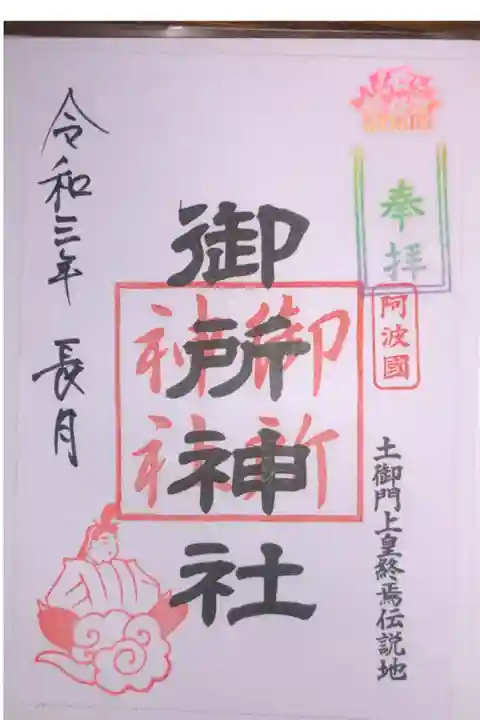 奉拝
阿波國
土御門上皇終焉伝説地
御所神社
御所
神社
令和三年 長月